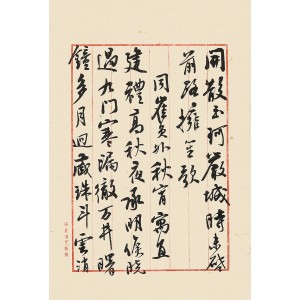 開散玉珂嚴城時未啓
前路擁笙歌
同崔員外秋宵寓直
建禮高秋夜承明候曉
過九門寒漏徹萬井曙
鐘多月迥藏珠斗雲消